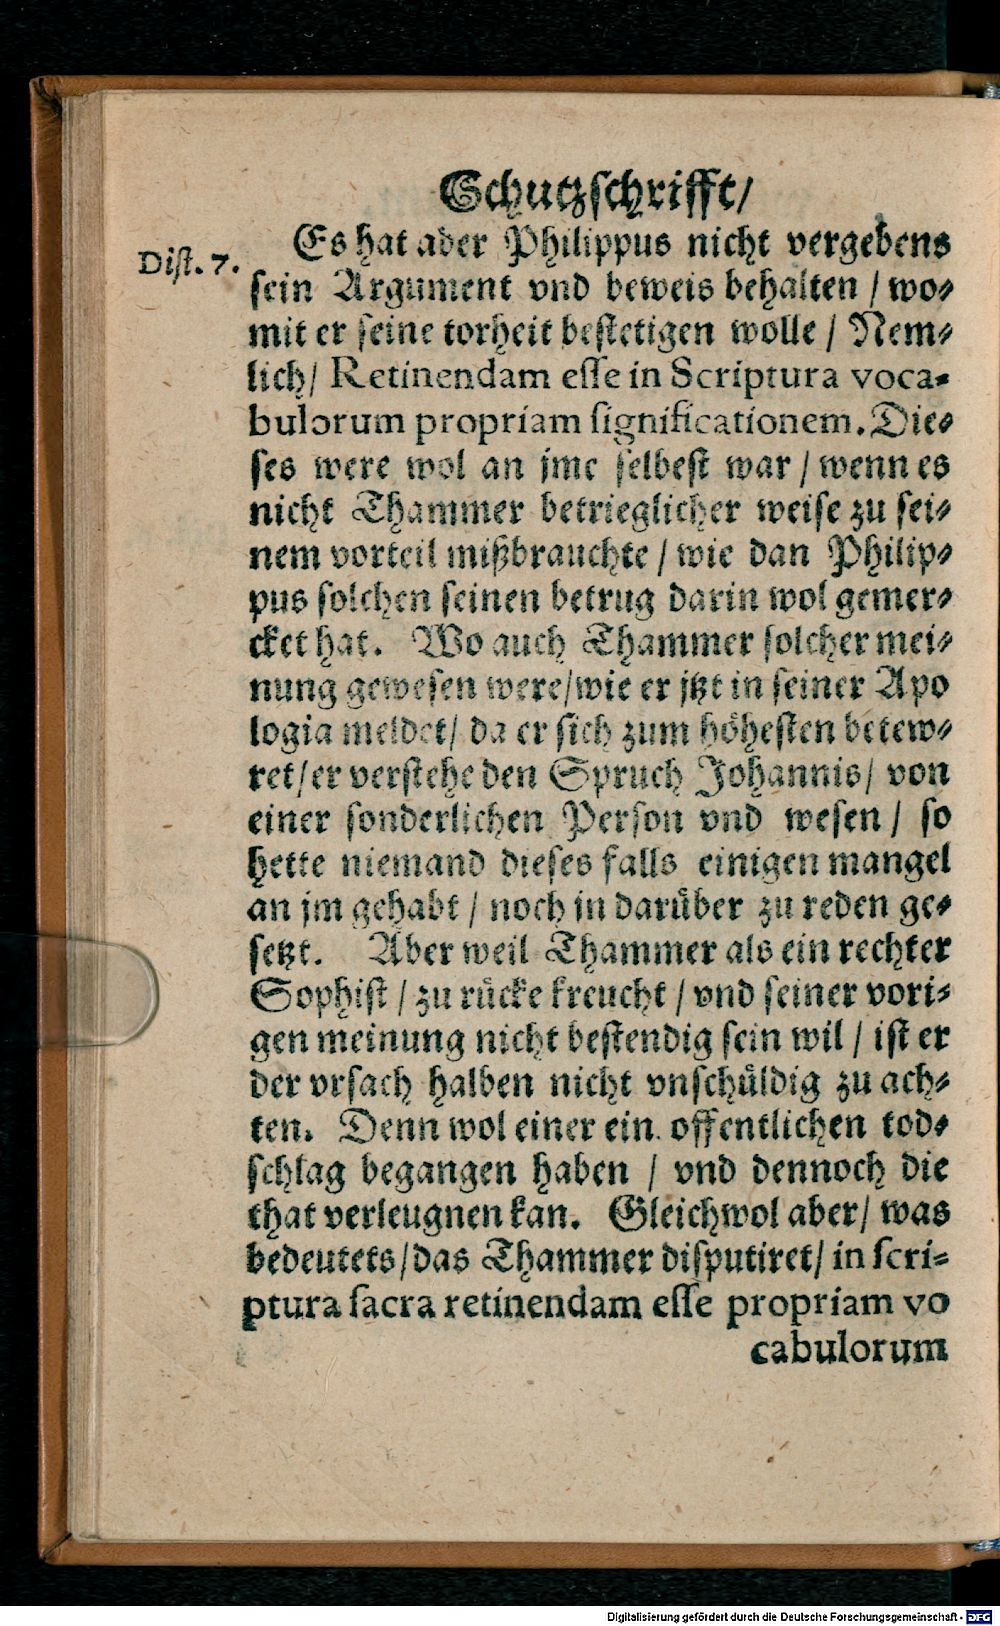 Schutzschrifft/
Dist. 7.
Es hat aber Philippus nicht vergebens
sein Argument vnd beweis behalten / wo⸗
mit er seine torheit bestetigen wolle / Nem⸗
lich/ Retinendam esse in Scriptura voca⸗
bulorum propriam significationem. Die⸗
ses were wol an jme selbest war / wenn es
nicht Thammer betrieglicher weise zu sei⸗
nem vorteil mißbrauchte / wie dan Philip⸗
pus solchen seinen betrug darin wol gemer⸗
cket hat. Wo auch Thammer solcher mei⸗
nung gewesen were/wie er jtzt in seiner Apo
logia meldet/ da er sich zum höhesten betew⸗
ret/er verstehe den Spruch Johannis/ von
einer sonderlichen Person vnd wesen / so
hette niemand dieses falls einigen mangel
an jm gehabt / noch jn darüber zu reden ge⸗
setzt. Aber weil Thammer als ein rechter
Sophist / zu rücke kreucht / vnd seiner vori⸗
gen meinung nicht bestendig sein wil / ist er
der vrsach halben nicht vnschüldig zu ach⸗
ten. Denn wol einer ein offentlichen tod⸗
schlag begangen haben / vnd dennoch die
that verleugnen kan. Gleichwol aber/ was
bedeutets/das Thammer disputiret/ in scri⸗
ptura sacra retinendam esse propriam vo
cabulorum
Digitalisierung gefördert durch die Deutsche Forschungsgemeinschaft - DFG